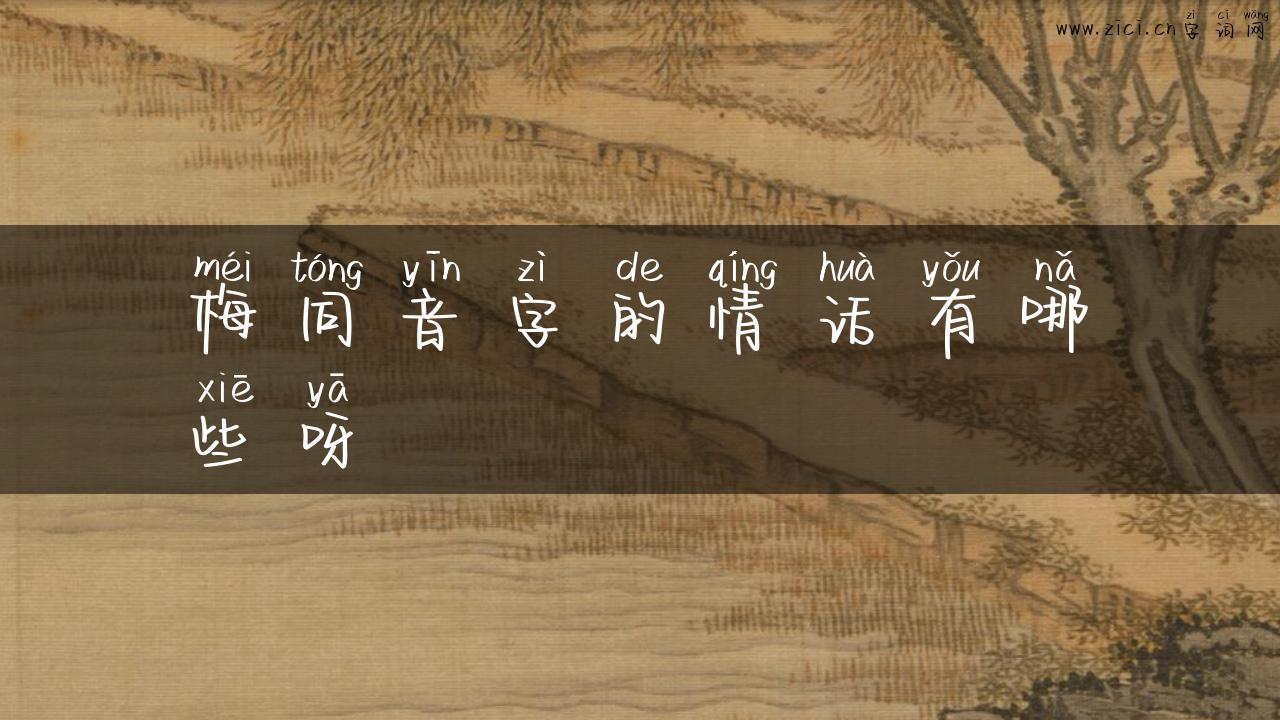 zì cí wǎng
www.zici.cn字词网
méi tóng yīn zì de qíng huà yǒu nǎ
梅同音字的情话有哪
xiē yā
些呀